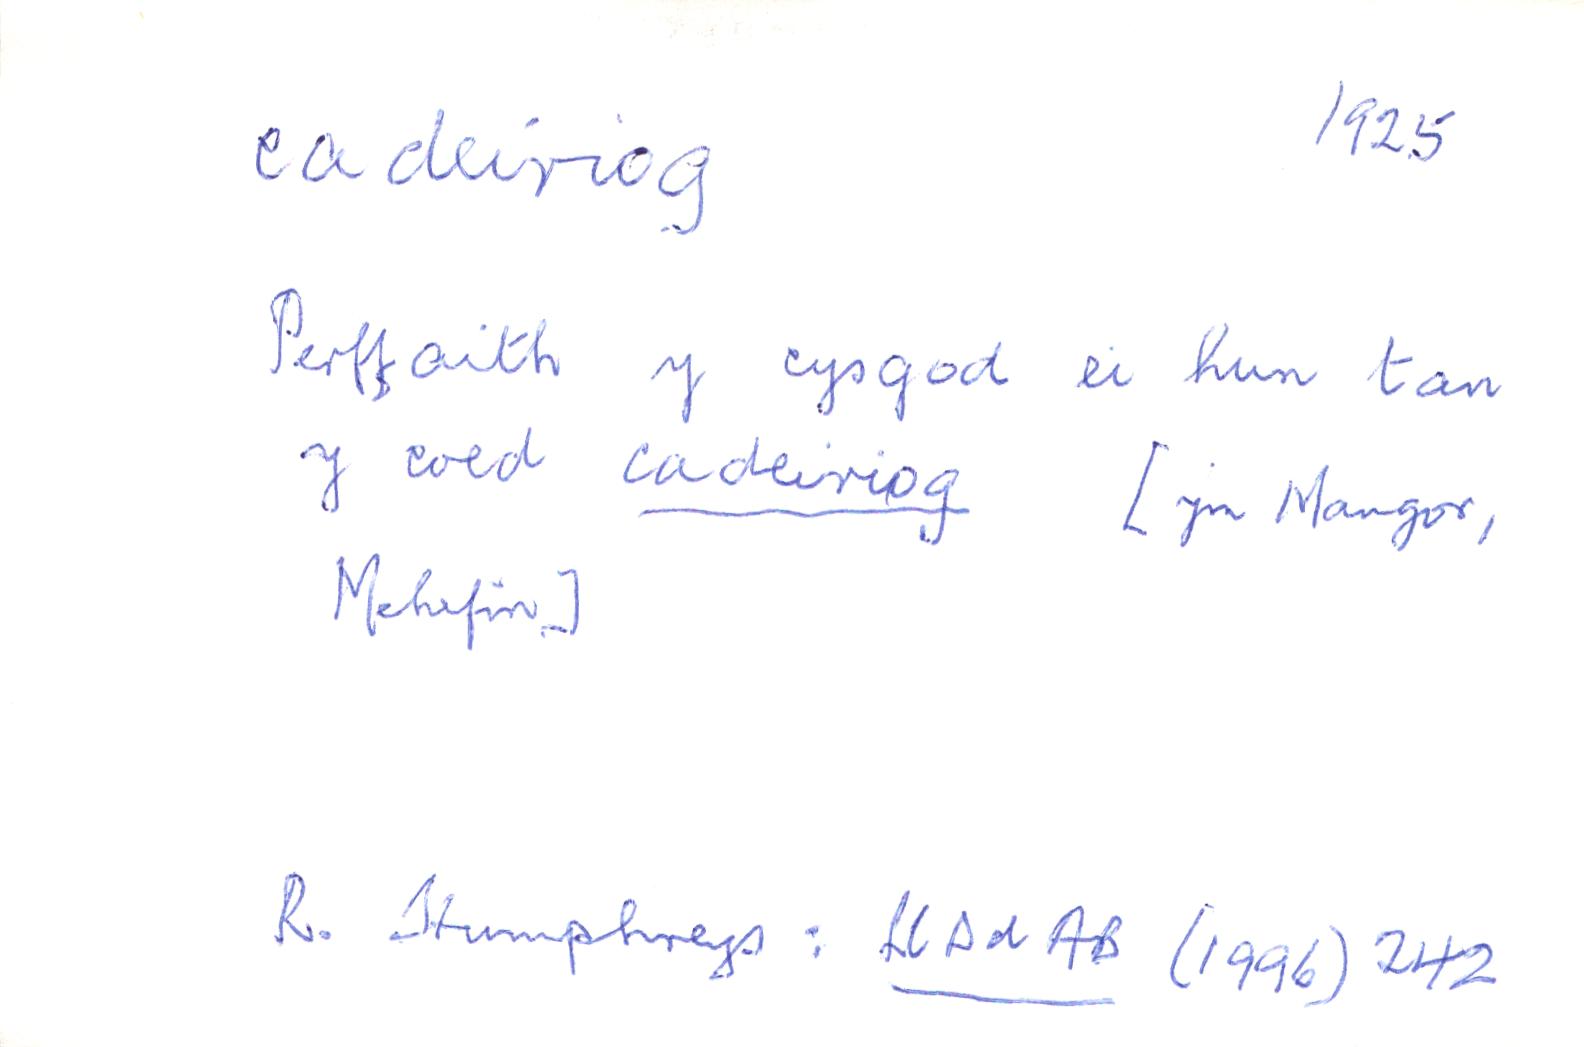 cadeiriog 1925
Perffaith y cysgod ei hun tan
y coed cadeiriog [ym Mangor,
Mehefin]
R. Humphreys: Ll Dd AB (1996) 242